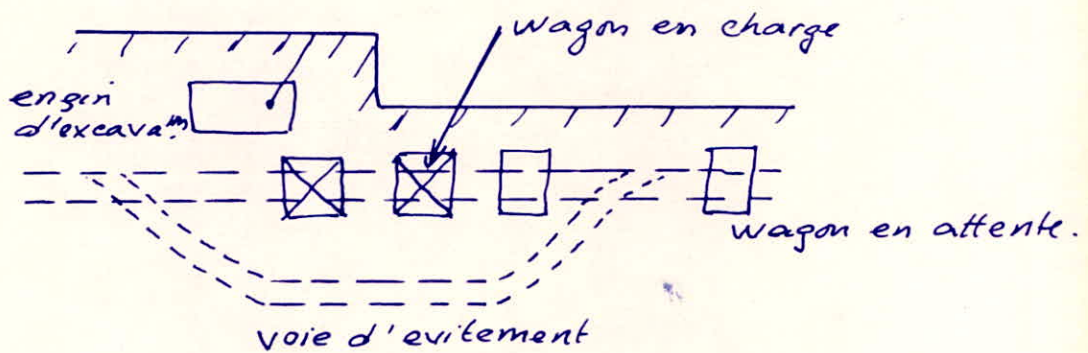 wagon en charge
engin
d'excavaᵗⁱᵒⁿ
wagon en attente.
voie d'evitement